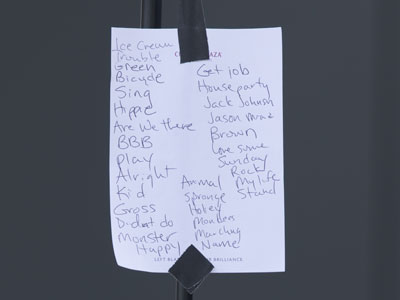 Ice Cream
Trouble
Green
Bicycle
Sing
Hippie
Are We there
BBB
play
Alright
Kid
Gross
Didnt do
Monster
Happy
AZA
Get job
House party
Jack Johnson
Jason mraz
Brown
Love some
Sunday
Rock
My life
Stand
Animal
Sponge
Marching
Name
LEFT BLA
BRILLIANCE